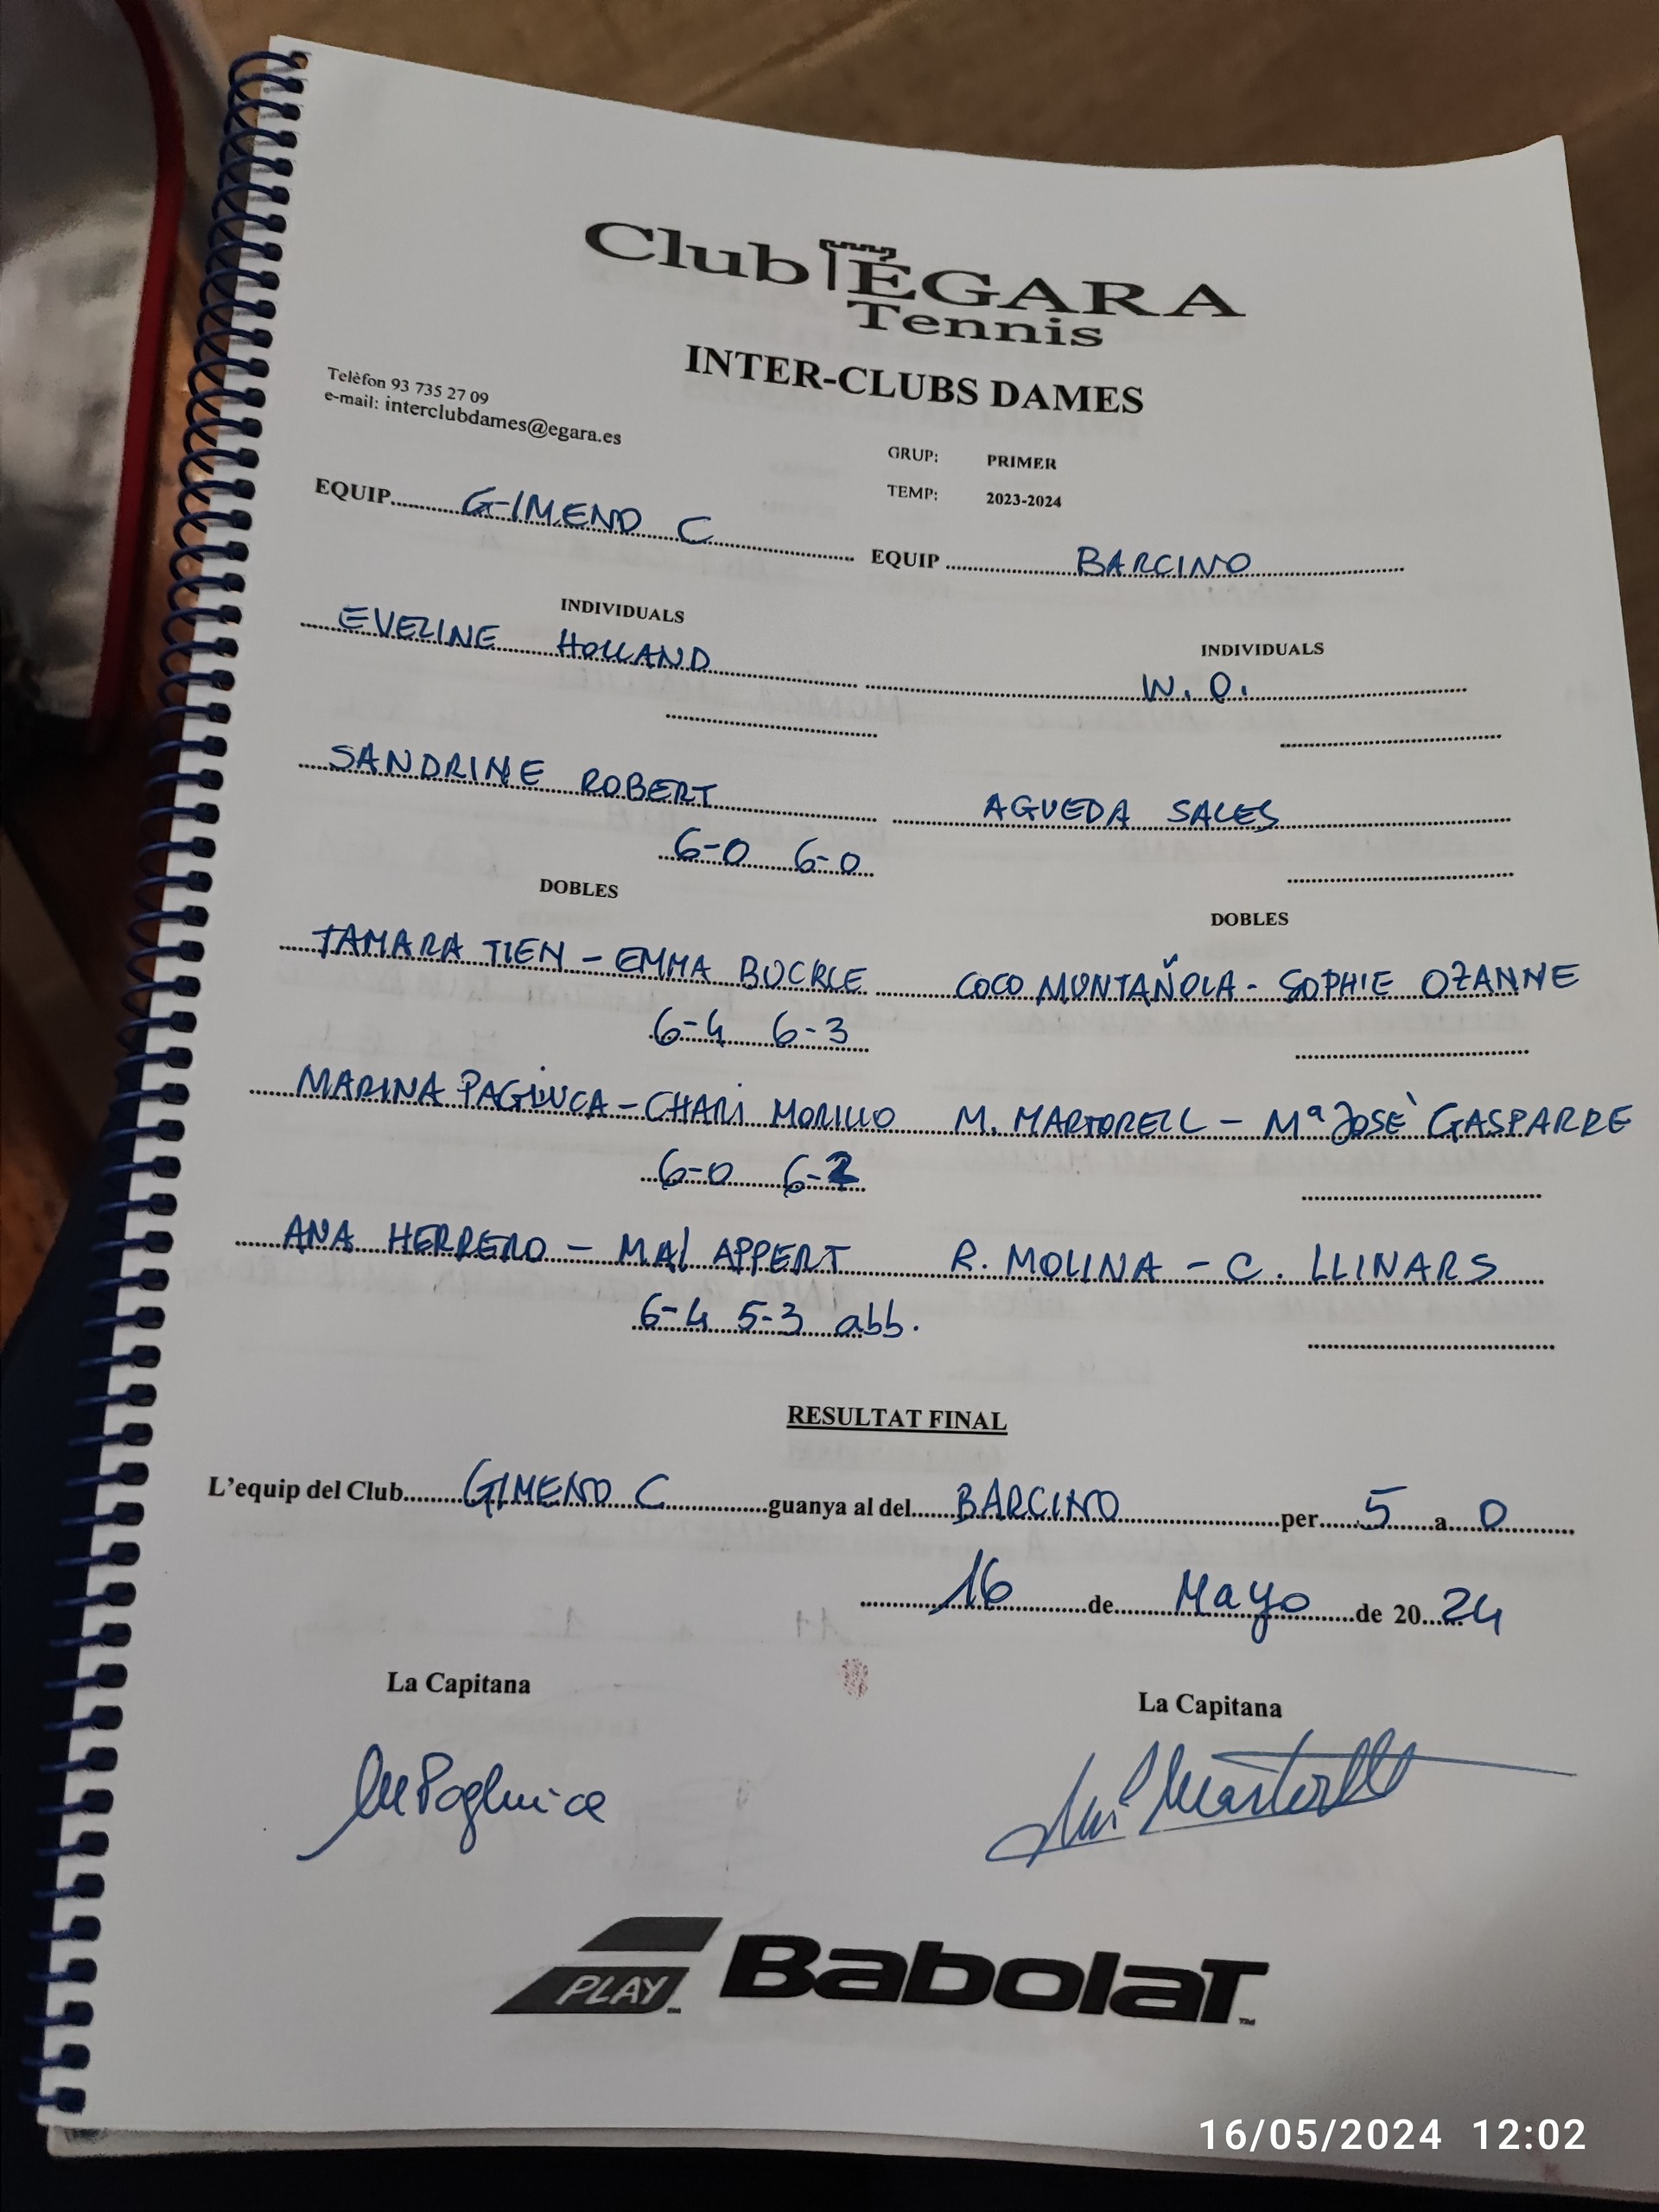 Club EGARA
Tennis
INTER-CLUBS DAMES
Telèfon 93 735 27 09
e-mail: interclubdames@egara.es
GRUP: PRIMER
TEMP: 2023-2024
EQUIP GIMENO C EQUIP BARCINO
INDIVIDUALS INDIVIDUALS
EVELINE HOLLAND W.O.
SANDRINE ROBERT AGUEDA SALES
6-0 6-0
DOBLES DOBLES
TAMARA TIEN - EMMA BUCKLE COCO MONTAÑOLA - SOPHIE OZANNE
6-4 6-3
MARINA PAGLIUCA - CHARI MORILLO M. MARTORELL - Mª JOSÈ GASPARRE
6-0 6-2
ANA HERRERO - MAI APPERT R. MOLINA - C. LLINARS
6-4 5-3 abb.
RESULTAT FINAL
L'equip del Club GIMENO C guanya al del BARCINO per 5 a 0
16 de Mayo de 2024
La Capitana La Capitana
PLAY Babolat
16/05/2024 12:02